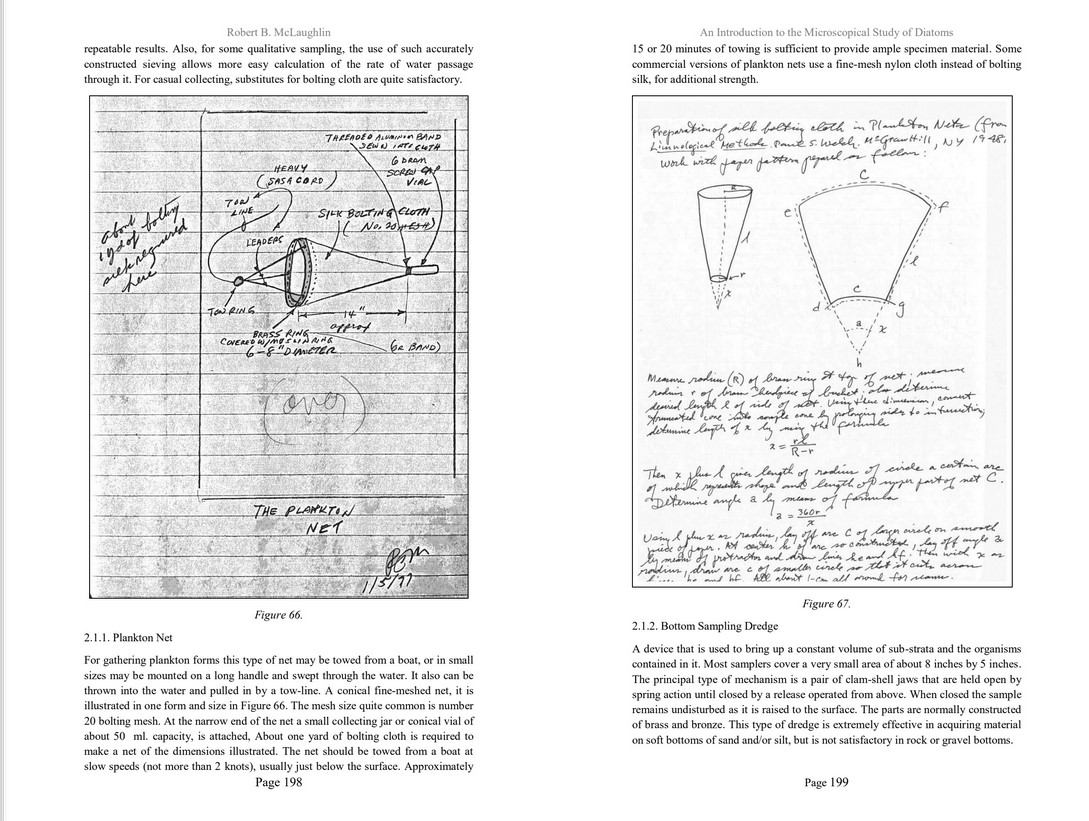 Robert B. McLaughlin
repeatable results. Also, for some qualitative sampling, the use of such accurately
constructed sieving allows more easy calculation of the rate of water passage
through it. For casual collecting, substitutes for bolting cloth are quite satisfactory.
THREADED ALUMINUM BAND
SEWN INTO CLOTH
6 DRAM
SCREW CAP
VIAL
HEAVY
(SASH CORD)
TOW
LINE
SILK BOLTING CLOTH
(No. 20 MESH)
LEADERS
about
1 yd of bolting
silk required
here
TOW RING
14"
approx
BRASS RING
COVERED W/MUSLIN RING
6-8" DIAMETER
(or BAND)
(over)
THE PLANKTON
NET
RBM
1/5/77
Figure 66.
2.1.1. Plankton Net
For gathering plankton forms this type of net may be towed from a boat, or in small
sizes may be mounted on a long handle and swept through the water. It also can be
thrown into the water and pulled in by a tow-line. A conical fine-meshed net, it is
illustrated in one form and size in Figure 66. The mesh size quite common is number
20 bolting mesh. At the narrow end of the net a small collecting jar or conical vial of
about 50 ml. capacity, is attached, About one yard of bolting cloth is required to
make a net of the dimensions illustrated. The net should be towed from a boat at
slow speeds (not more than 2 knots), usually just below the surface. Approximately
Page 198
An Introduction to the Microscopical Study of Diatoms
15 or 20 minutes of towing is sufficient to provide ample specimen material. Some
commercial versions of plankton nets use a fine-mesh nylon cloth instead of bolting
silk, for additional strength.
Preparation of silk bolting cloth in Plankton Nets (from
Limnological Methods. Paul S. Welch, McGraw Hill, NY 1948,
Work with paper pattern prepared as follows:
R
l
r
x
C
e
f
l
c
d
g
a
x
h
Measure radius (R) of brass ring at top of net. measure
radius r of brass headpiece of bucket. also determine
desired length l of side of net. Using these dimensions, convert
truncated cone into simple cone by prolonging sides to intersection,
determine length of x by using the formula
x = rl / R-r
Then x plus l gives length of radius of circle a certain arc
of which represents shape and length of upper part of net C.
Determine angle a by means of formula
a = 360r / x
Using l plus x as radius, lay off arc C of larger circle on smooth
piece of paper. At center h of arc so constructed, lay off angle a
by means of protractor and draw lines he and hf. Then with x as
radius, draw arc c of smaller circle so that it cuts across
he and hf. All about 1-cm all around for seams.
Figure 67.
2.1.2. Bottom Sampling Dredge
A device that is used to bring up a constant volume of sub-strata and the organisms
contained in it. Most samplers cover a very small area of about 8 inches by 5 inches.
The principal type of mechanism is a pair of clam-shell jaws that are held open by
spring action until closed by a release operated from above. When closed the sample
remains undisturbed as it is raised to the surface. The parts are normally constructed
of brass and bronze. This type of dredge is extremely effective in acquiring material
on soft bottoms of sand and/or silt, but is not satisfactory in rock or gravel bottoms.
Page 199